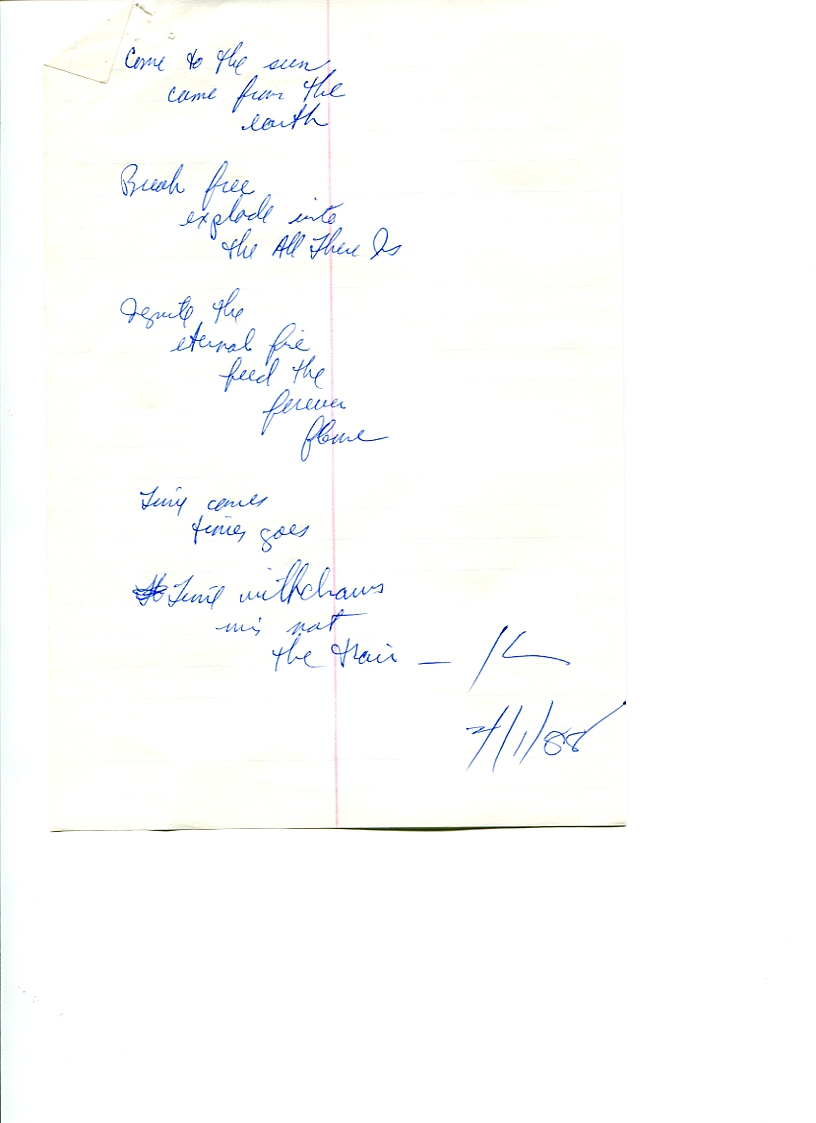 Come to the sun
come from the
earth
Break free
explode into
the All There Is
Ignite the
eternal fire
feed the
forever
flame
Time comes
times goes
Time withdraws
not
the train —
/1/88